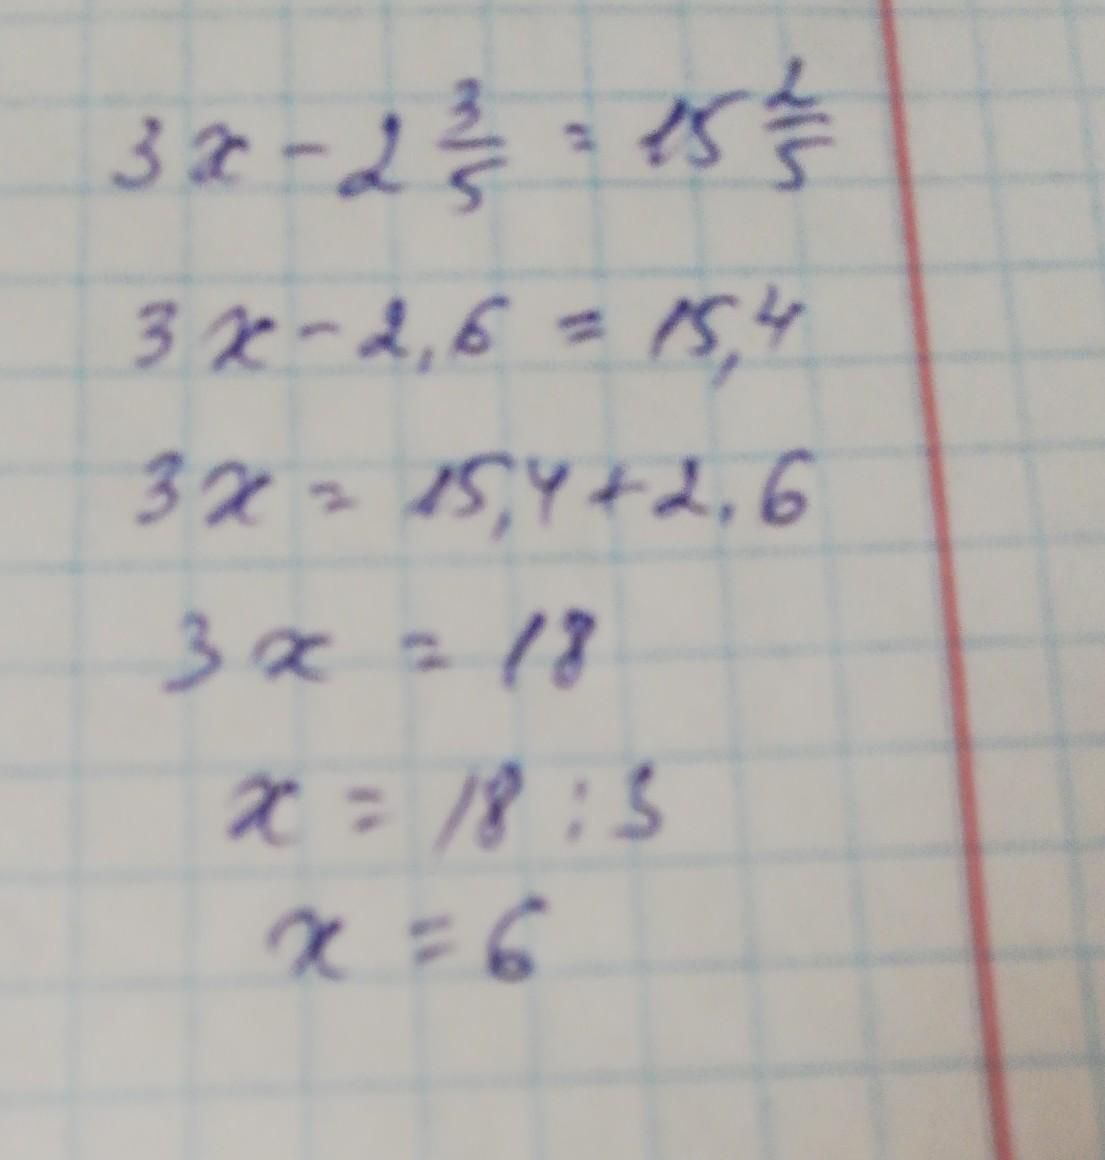 3x - 2 3/5 = 15 2/5
3x - 2,6 = 15,4
3x = 15,4 + 2,6
3x = 18
x = 18 : 3
x = 6